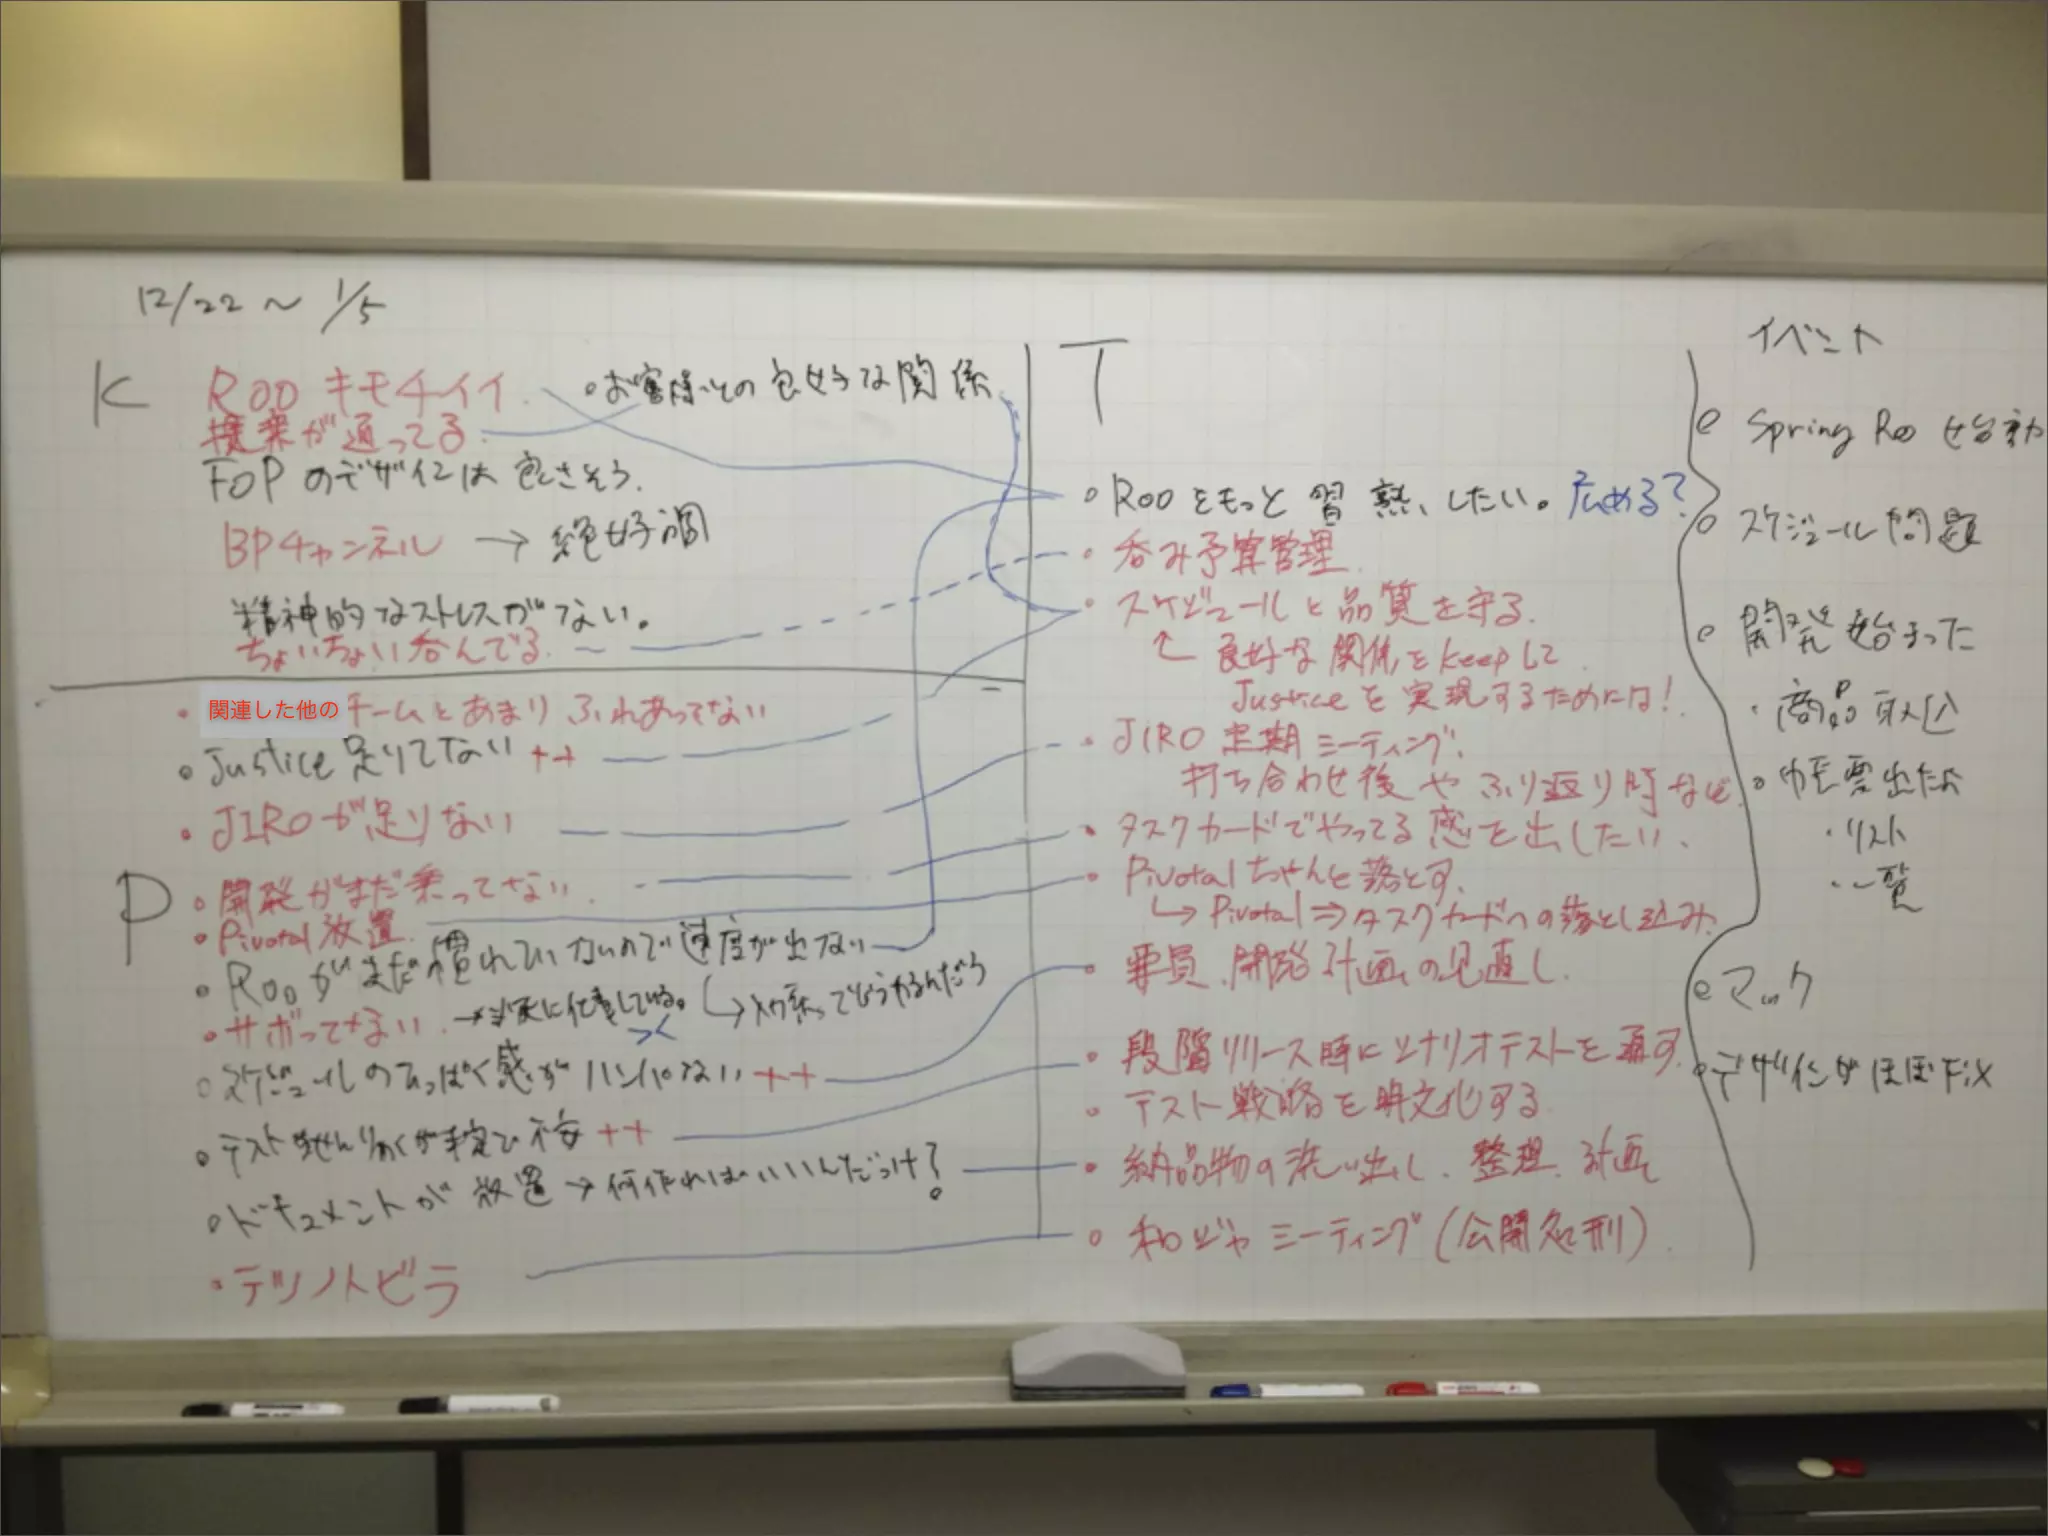 12/22 〜 1/5
K
Roo キモチイイ
・お客様との良好な関係
提案が通ってる
FOPのデザインは良さそう.
BPチャンネル → 絶好調
精神的なストレスがない。
ちょいちょい呑んでる
P
・関連した他のチームとあまりふれあってない
・Justice 足りてない ++
・JIROが足りない
・開発がまだ乗ってない
・Pivotal 放置
・Rooがまだ慣れていないので速度が出ない
・サボってない → に仕事している。
・スケジュールのあっぱく感がハンパない ++
・テスト不安 ++
・ドキュメントが放置 → 何作ればいいんだっけ?
・デツノトビラ
T
・Rooをもっと習熟したい。広める?
・呑み予算管理
・スケジュールと品質を守る.
良好な関係をkeepして
Justiceを実現するためには!
・JIRO 定期ミーティング.
打ち合わせ後やふり返り時など
・タスクカードでやってる感を出したい.
・Pivotalちゃんと落とす.
↳ Pivotal ⇒ タスクカードへの落とし込み.
・要員、開発計画の見直し.
・段階リリース時にシナリオテストを通す.
・テスト戦略を明文化する
・納品物の洗い出し、整理、計画
・ミーティング(公開処刑)
イベント
Spring Roo せ始動
スケジュール問題
開発始まった
・商品取込
・帳票出たよ
・リスト
・一覧
マック
デザインがほぼFix